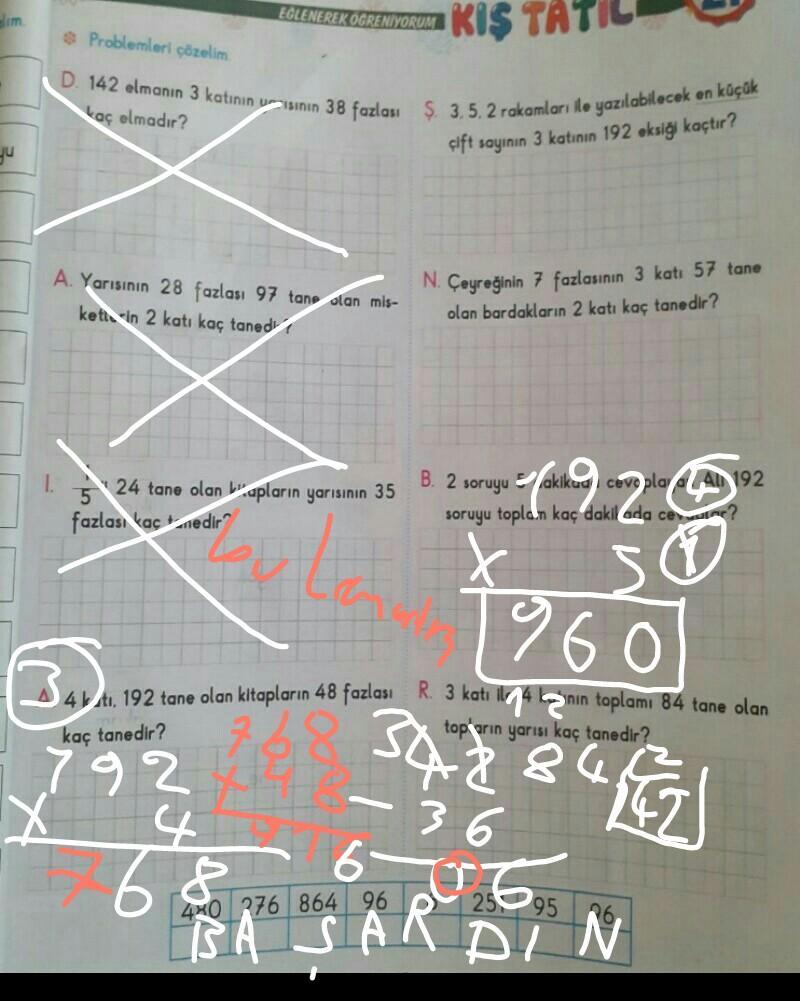 EĞLENEREK ÖĞRENİYORUM
KIŞ TATİL
Problemleri çözelim
D. 142 elmanın 3 katının yarısının 38 fazlası
kaç elmadır?
Ş. 3, 5, 2 rakamları ile yazılabilecek en küçük
çift sayının 3 katının 192 eksiği kaçtır?
A. Yarısının 28 fazlası 97 tane olan mis-
ketlerin 2 katı kaç tanedir?
N. Çeyreğinin 7 fazlasının 3 katı 57 tane
olan bardakların 2 katı kaç tanedir?
I. 24 tane olan kitapların yarısının 35
fazlası kaç tanedir?
B. 2 soruyu 5 dakikada Ali 192
soruyu toplam kaç dakikada
192
x 5
960
3
4 katı, 192 tane olan kitapların 48 fazlası
kaç tanedir?
R. 3 katı ile 4 katının toplamı 84 tane olan
topların yarısı kaç tanedir?
192
x 4
768
768
+ 48
84 2
42
36
06
480 276 864 96 95 96
B A Ş A R D I N